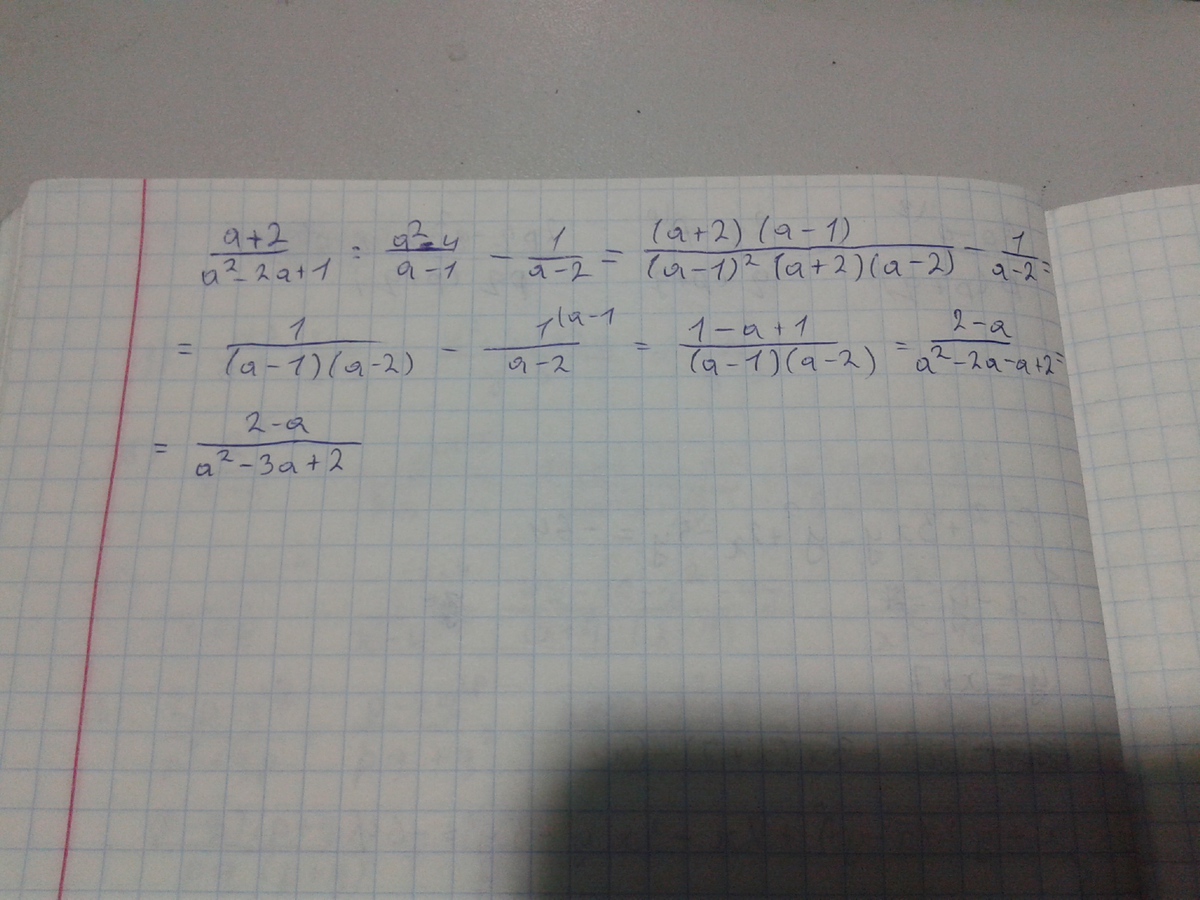 (a+2)/(a²-2a+1) : (a²-4)/(a-1) - 1/(a-2) = ((a+2)(a-1))/((a-1)²(a+2)(a-2)) - 1/(a-2) =
= 1/((a-1)(a-2)) - 1^(a-1/(a-2) = (1-a+1)/((a-1)(a-2)) = (2-a)/(a²-2a-a+2) =
= (2-a)/(a²-3a+2)